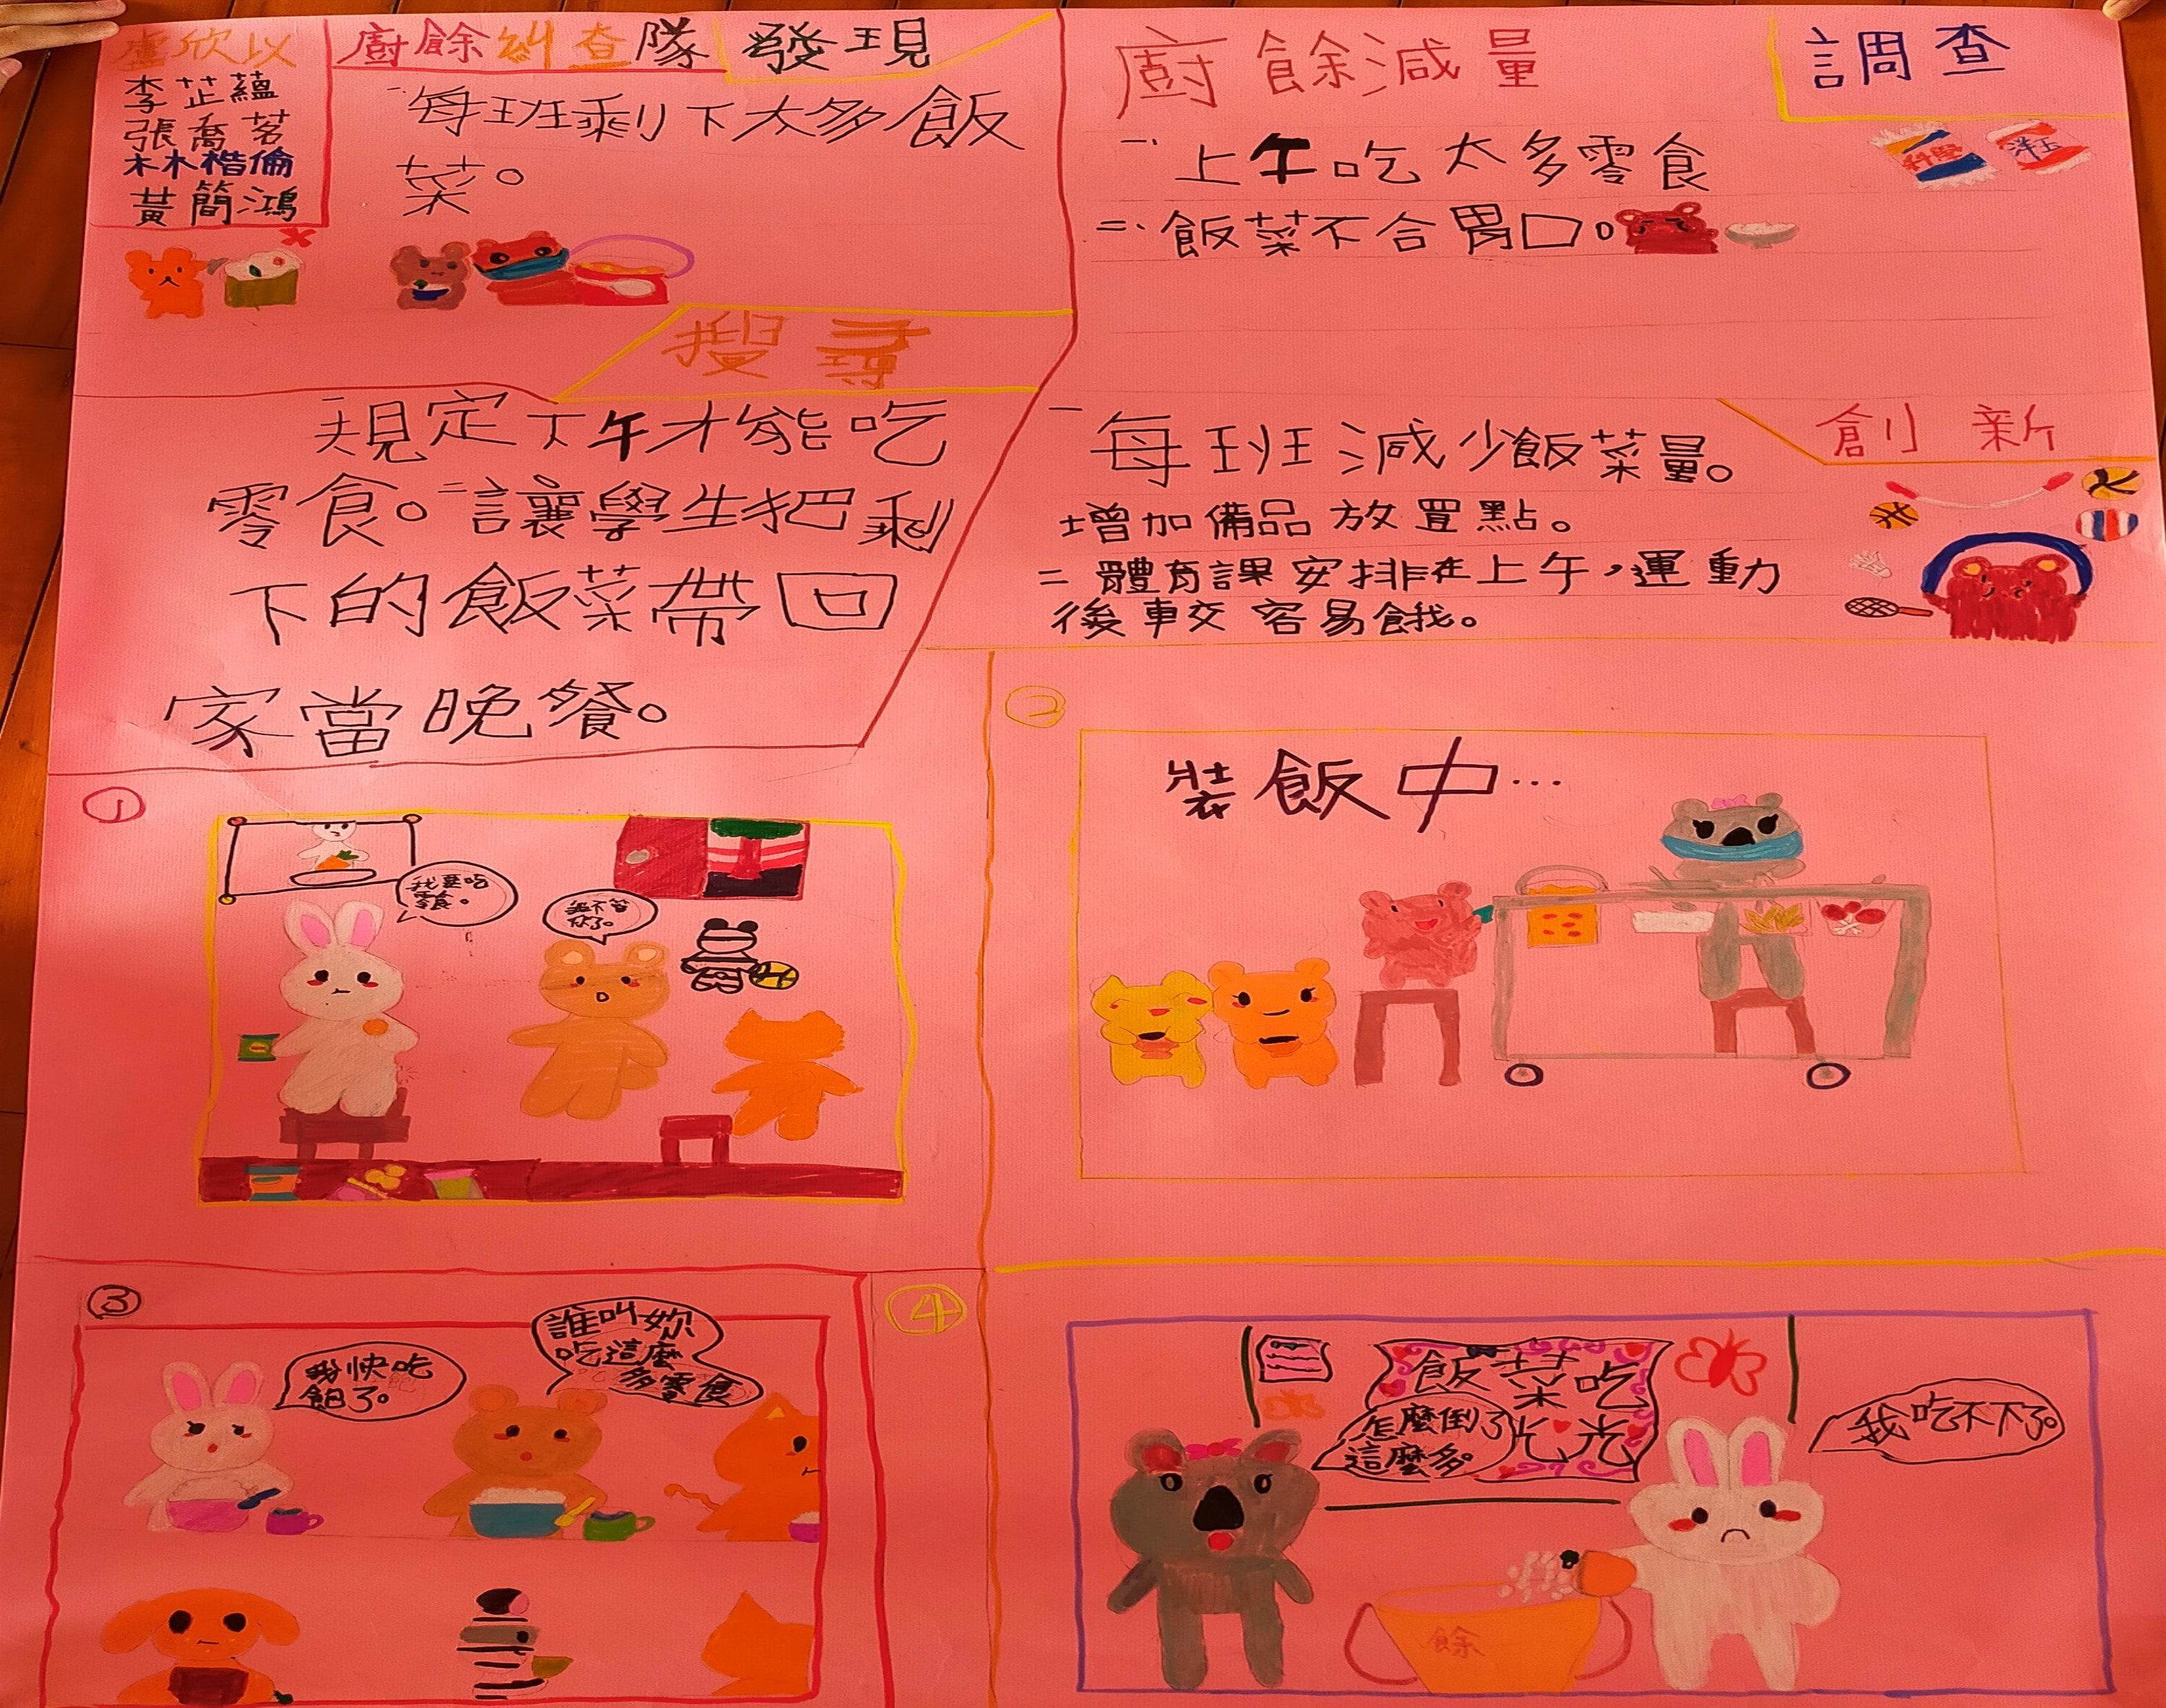 盧欣以
李芷蘊
張喬茗
林楷倫
黃簡鴻
廚餘糾查隊 發現
一、每班剩下太多飯
菜。
廚餘減量
調查
科學
洋玉
一、上午吃太多零食
二、飯菜不合胃口。
搜尋
一規定下午才能吃
零食。二讓學生把剩
下的飯菜帶回
家當晚餐。
創新
一每班減少飯菜量。
增加備品放置點。
二體育課安排在上午，運動
後較容易餓。
①
我要吃
零食。
我不管
你了。
②
裝飯中…
③
我快吃
飽了。
誰叫妳
吃這麼
多零食
④
飯菜吃
光光
怎麼倒了
這麼多。
我吃不下了。
餘